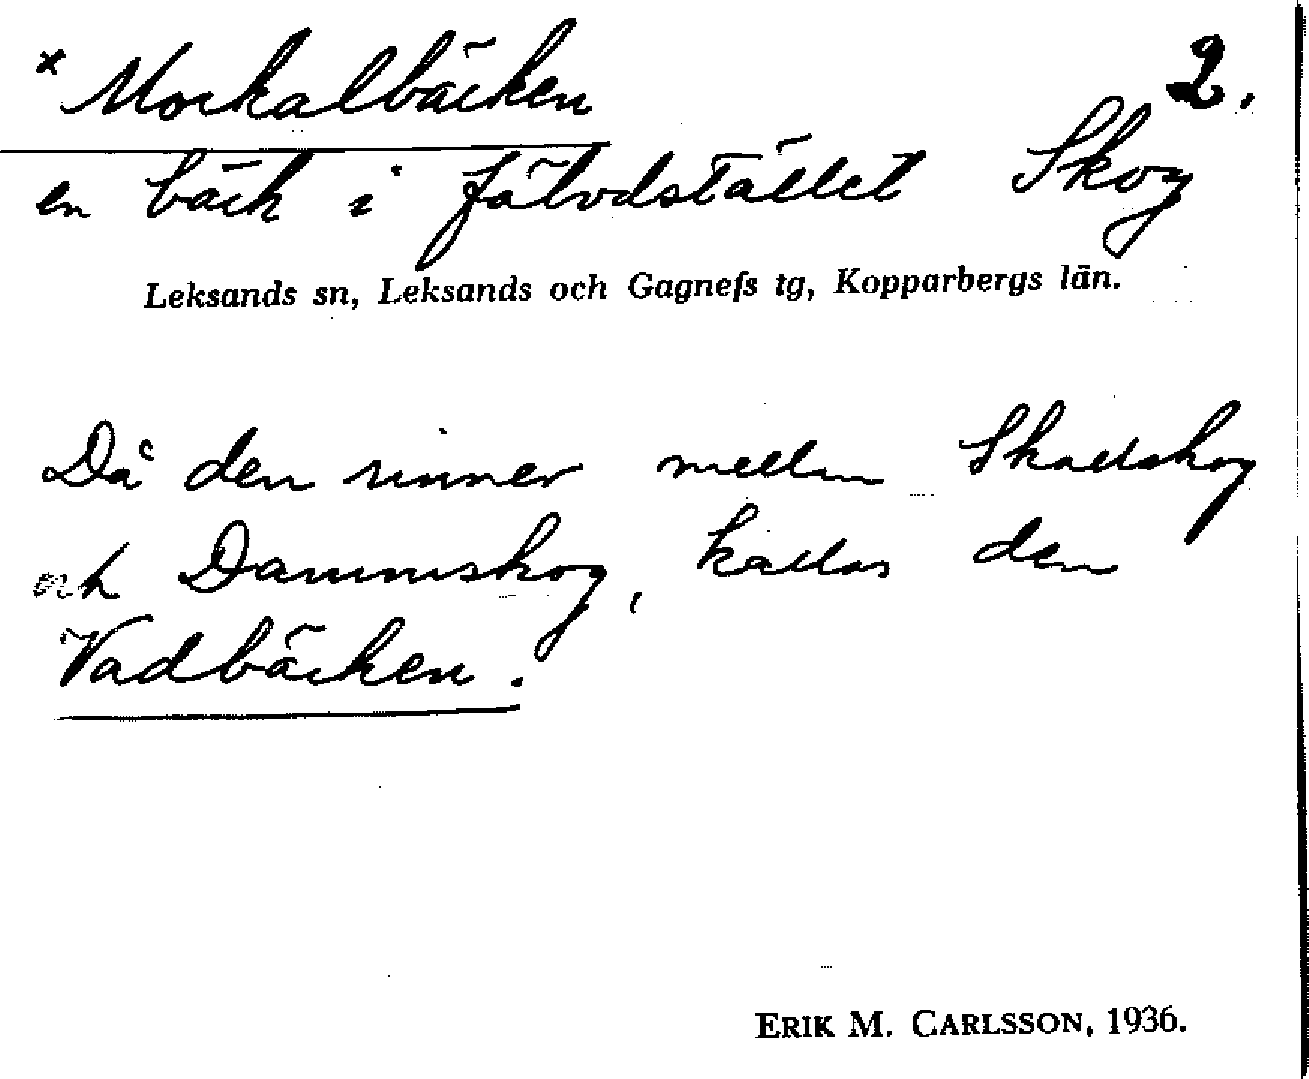 × Morkalbäcken 2.
en bäck i fäbodstället Skog
Leksands sn, Leksands och Gagnefs tg, Kopparbergs län.
Då den rinner mellan Skallskog
och Dammskog, kallas den
Vadbäcken.
ERIK M. CARLSSON, 1936.